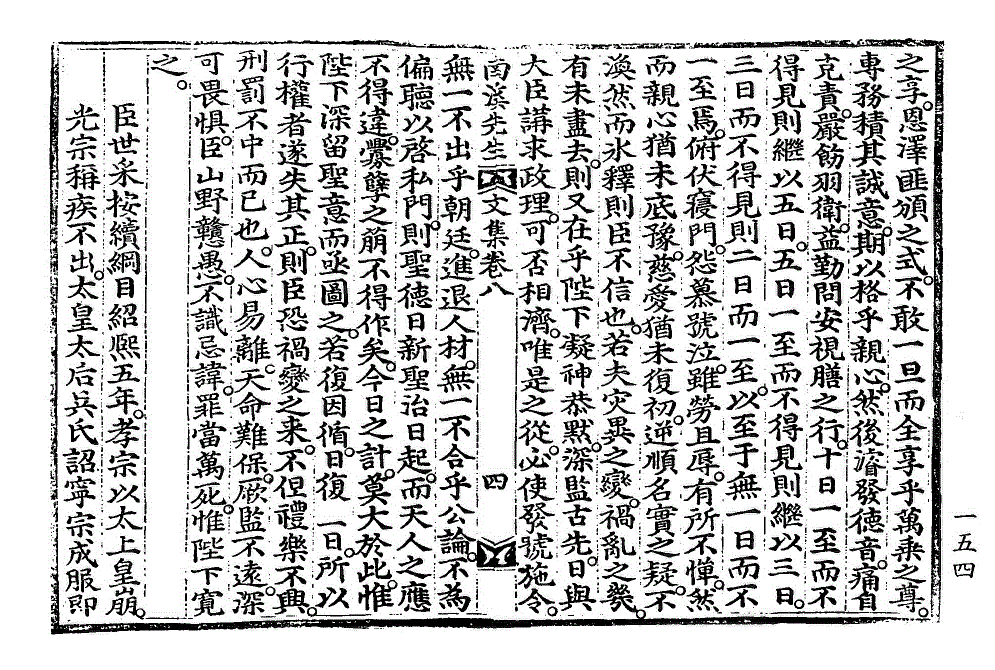 之享。恩澤匪頒之式。不敢一旦而全享乎萬乘之尊。
專務積其誠意。期以格乎親心。然後濬發德音。痛自
克責。嚴飭羽衛。益勤問安視膳之行。十日一至而不
得見則繼以五日。五日一至而不得見則繼以三日。
三日而不得見則二日而一至。以至于無一日而不
一至焉。俯伏寢門。怨慕號泣。雖勞且辱。有所不憚。然
而親心猶未底豫。慈愛猶未復初。逆順名實之疑。不
渙然而氷釋則臣不信也。若夫灾異之變。禍亂之幾。
有未盡去。則又在乎陛下凝神恭默。深監古先。日與
大臣講求政理。可否相濟。唯是之從。必使發號施令。
南溪先生文集卷八 四
無一不出乎朝廷。進退人材。無一不合乎公論。不爲
偏聽以啓私門。則聖德日新。聖治日起。而天人之應
不得違。釁孼之萠不得作矣。今日之計。莫大於此。惟
陛下深留聖意而亟圖之。若復因循。日復一日。所以
行權者遂失其正。則臣恐禍變之來。不但禮樂不興。
刑罰不中而已也。人心易離。天命難保。厥監不遠。深
可畏懼。臣山野戇愚。不識忌諱。罪當萬死。惟陛下寬
之。
臣世采按續綱目紹熙五年。孝宗以太上皇崩。
光宗稱疾不出。太皇太后吳氏詔寧宗成服卽
一五四